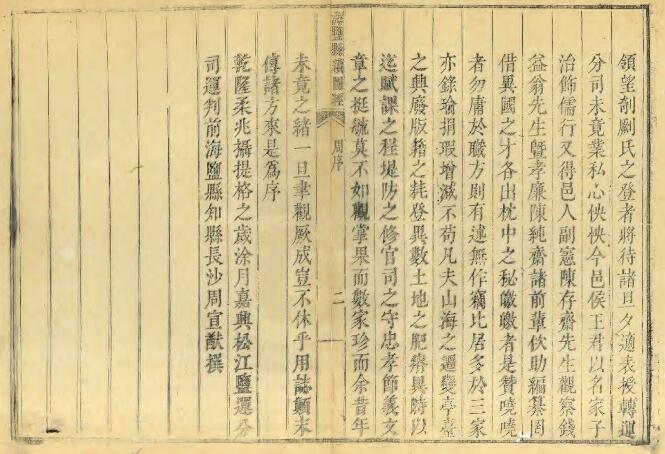 領望剞劂氏之登者將待諸旦夕適表授轉運
分司未竟業私心怏怏今邑侯王君以名家子
治飾儒行又得邑人副憲陳存齋先生觀察錢
益翁先生暨孝廉陳純齋諸前輩佽助編纂罔
借異國之才各出枕中之秘皦皦者是贊嘵嘵
者勿庸於職方則有述無作竊比居多於三家
亦錄瑜捐瑕增減不苟凡夫山海之遷變亭臺
之興廢版籍之耗登異數土地之肥瘠異時以
迄賦課之程堤防之修官司之守忠孝節義文
章之挺毓莫不如觀掌果而數家珍而余昔年
海鹽縣續圖經
周序
二
未竟之緒一旦聿觀厥成豈不休乎用誌顛末
傳諸方來是為序
乾隆柔兆攝提格之歲涂月嘉興松江鹽運分
司運判前海鹽縣知縣長沙周宣猷撰